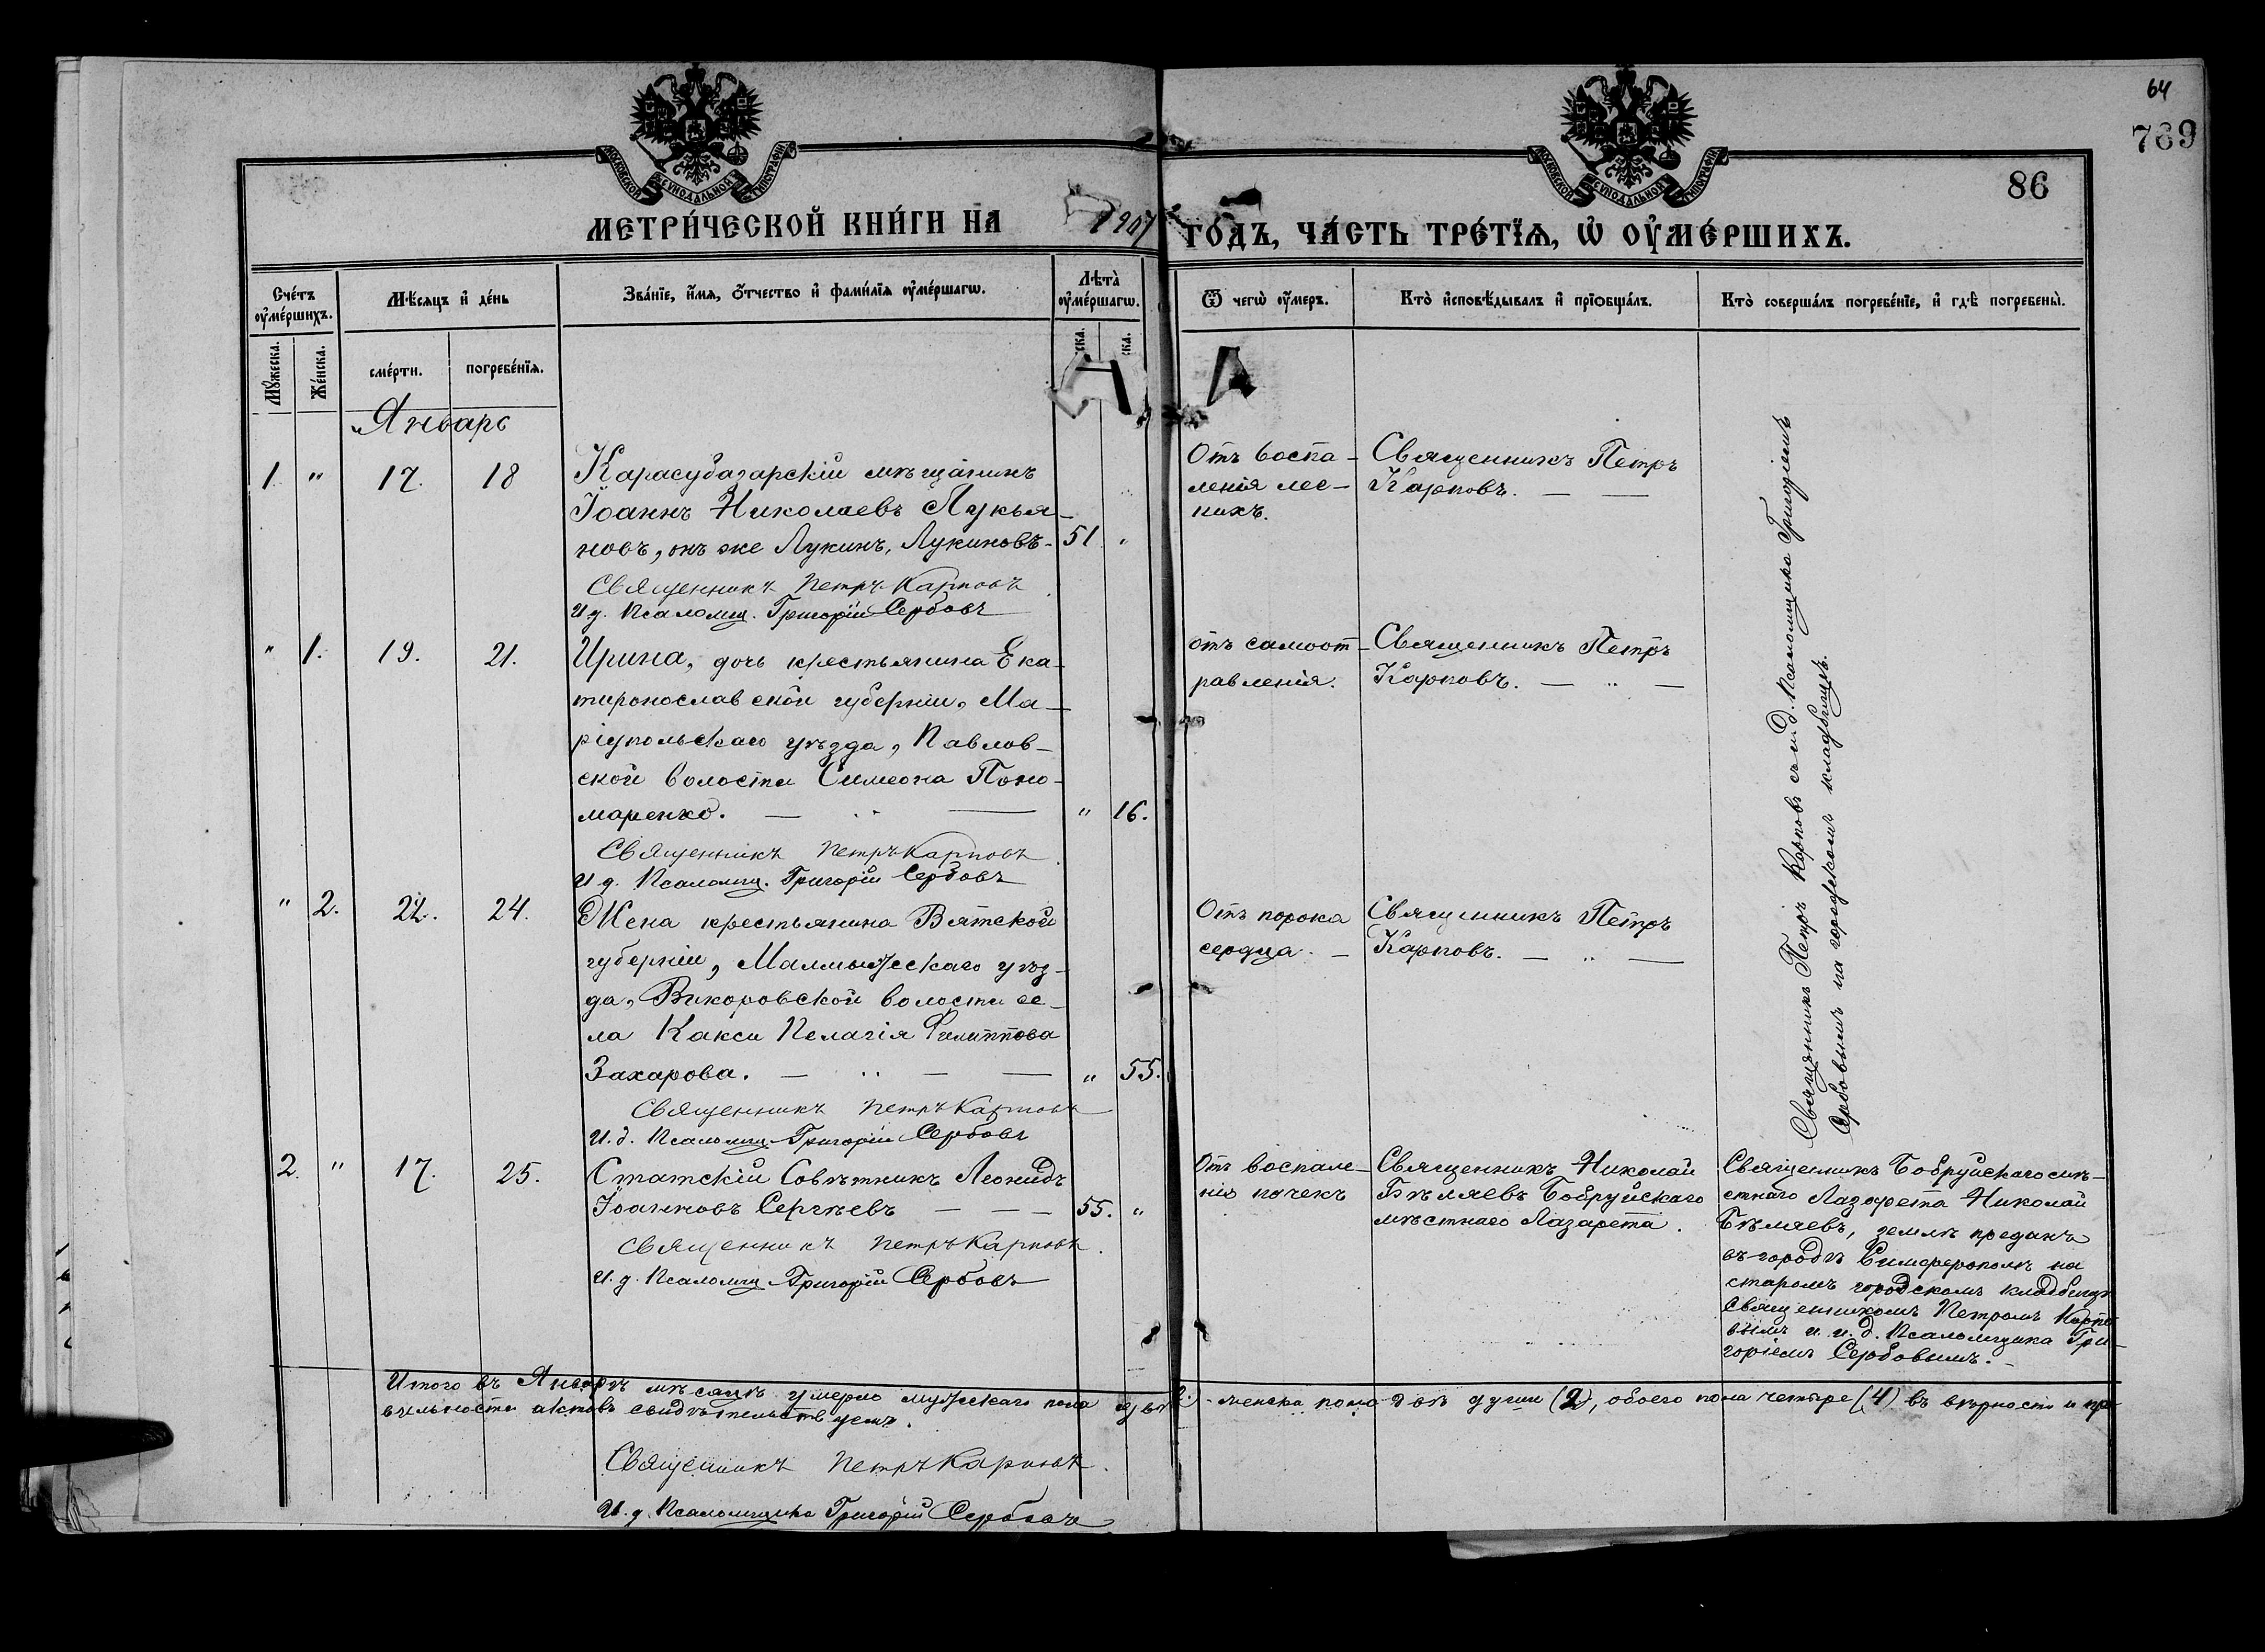 64
769
86
МОСКОВСКОЙ СѴНОДАЛЬНОЙ ТИПОГРАФІИ
МОСКОВСКОЙ СѴНОДАЛЬНОЙ ТИПОГРАФІИ
МЕТРИ́ЧЕСКОЙ КНИ́ГИ НА 1907 ГО́ДЪ, ЧА́СТЬ ТРЕ́ТЇѦ, Ѡ҆ ОУ҆МЕ́РШИХЪ.
Сче́тъ оу҆ме́ршихъ.
Мꙋ́жеска.
Же́нска.
Мѣ́сяцъ и҆ де́нь
сме́рти.
погребе́нїѧ.
Зва́нїе, и҆́мѧ, ѻ҆́тчество и҆ фами́лїѧ оу҆ме́ршагѡ.
Лѣта̀ оу҆ме́ршагѡ.
ска.
ска.
Ѿ чегѡ̀ оу҆́меръ.
Кто̀ и҆сповѣ́дывалъ и҆ прїѡбща́лъ.
Кто̀ соверша́лъ погребе́нїе, и҆ гдѣ̀ погребены̀.
Январь
1. " 17. 18
Карасубазарскій мѣщанинъ
Іоаннъ Николаевъ Лукья-
новъ, онъ же Лукинъ, Лукиновъ- 51 "
Священникъ Петръ Карповъ
И д. Псаломщ. Григорій Сербовъ
Отъ воспа-
ленія лег-
кихъ.
Священникъ Петръ
Карповъ. — —
" 1. 19. 21.
Ирина, дочь крестьянина Ека-
тиринославской губерніи, Ма-
ріупольскаго уѣзда, Павлов-
ской волости Симеона Поно-
маренко. — " — " 16.
Священникъ Петръ Карповъ
И д. Псаломщ. Григорій Сербовъ
отъ самоот-
равленія.
Священникъ Петръ
Карповъ. — " —
" 2. 22. 24.
Жена крестьянина Вятской
губерніи, Малмыжскаго уѣз-
да, волости се-
ла Какси Пелагія Филиппова
Захарова. — " — — " 55.
Священникъ Петръ Карповъ
И. д. Псаломщ. Григорій Сербовъ
Отъ порока
сердца. —
Священникъ Петръ
Карповъ. — " —
Священникъ Петръ Карповъ съ и. д. Псаломщика Григоріемъ
Сербовымъ на городскомъ кладбищѣ.
2. " 17. 25.
Статскій Совѣтникъ Леонидъ
Іоанновъ Сергѣевъ — — — 55. "
Священникъ Петръ Карповъ.
И. д. Псаломщ. Григорій Сербовъ
Отъ воспале-
нія почекъ
Священникъ Николай
Бѣляевъ Бобруйскаго
мѣстнаго Лазарета.
Священникъ Бобруйскаго мѣ-
стнаго Лазарета Николай
Бѣляевъ, землѣ преданъ
въ городѣ Симферополѣ на
старомъ городскомъ кладбищѣ
Священникомъ Петромъ Карпо-
вымъ и и. д. Псаломщика Гри-
горіемъ Сербовымъ. —
Итого въ Январѣ мѣсяцѣ умерло мужскаго пола двѣ 2. женска пола двѣ души (2), обоего пола четыре (4) въ вѣрности и пра-
вильности актовъ свидѣтельствуемъ.
Священникъ Петръ Карповъ.
И. д. Псаломщика Григорій Сербовъ